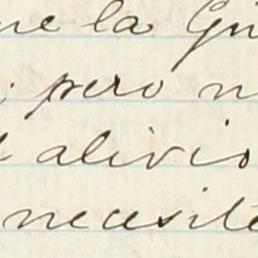 ue la Gu
; pero n
alivio
necesite